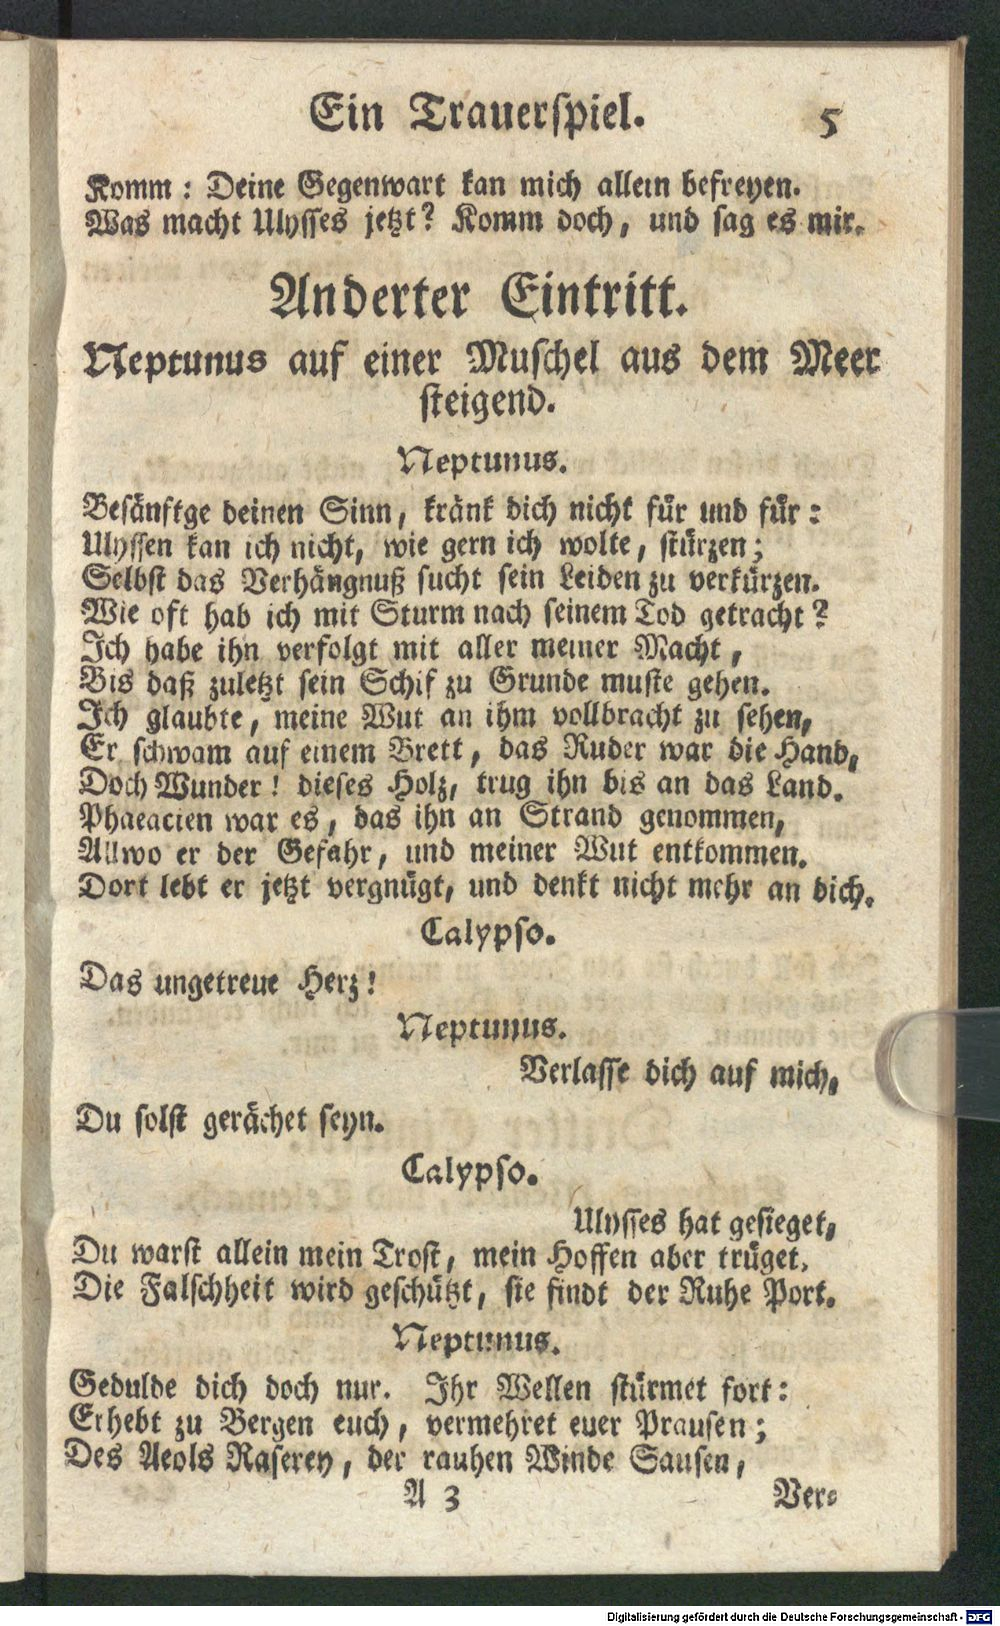 Ein Trauerspiel. 5
Komm: Deine Gegenwart kan mich allein befreyen.
Was macht Ulysses jetzt? Komm doch, und sag es mir.
Anderter Eintritt.
Neptunus auf einer Muschel aus dem Meer
steigend.
Neptunus.
Besänftge deinen Sinn, kränk dich nicht für und für:
Ulyssen kan ich nicht, wie gern ich wolte, stürzen;
Selbst das Verhängnuß sucht sein Leiden zu verkürzen.
Wie oft hab ich mit Sturm nach seinem Tod getracht?
Ich habe ihn verfolgt mit aller meiner Macht,
Bis daß zuletzt sein Schif zu Grunde muste gehen.
Ich glaubte, meine Wut an ihm vollbracht zu sehen,
Er schwam auf einem Brett, das Ruder war die Hand,
Doch Wunder! dieses Holz, trug ihn bis an das Land.
Phaeacien war es, das ihn an Strand genommen,
Allwo er der Gefahr, und meiner Wut entkommen.
Dort lebt er jetzt vergnügt, und denkt nicht mehr an dich.
Calypso.
Das ungetreue Herz!
Neptunus.
Verlasse dich auf mich,
Du solst gerächet seyn.
Calypso.
Ulysses hat gesieget,
Du warst allein mein Trost, mein Hoffen aber trüget.
Die Falschheit wird geschützt, sie findt der Ruhe Port.
Neptunus.
Gedulde dich doch nur. Ihr Wellen stürmet fort:
Erhebt zu Bergen euch, vermehret euer Prausen;
Des Aeols Raserey, der rauhen Winde Sausen,
A 3 Ver-
Digitalisierung gefördert durch die Deutsche Forschungsgemeinschaft - DFG